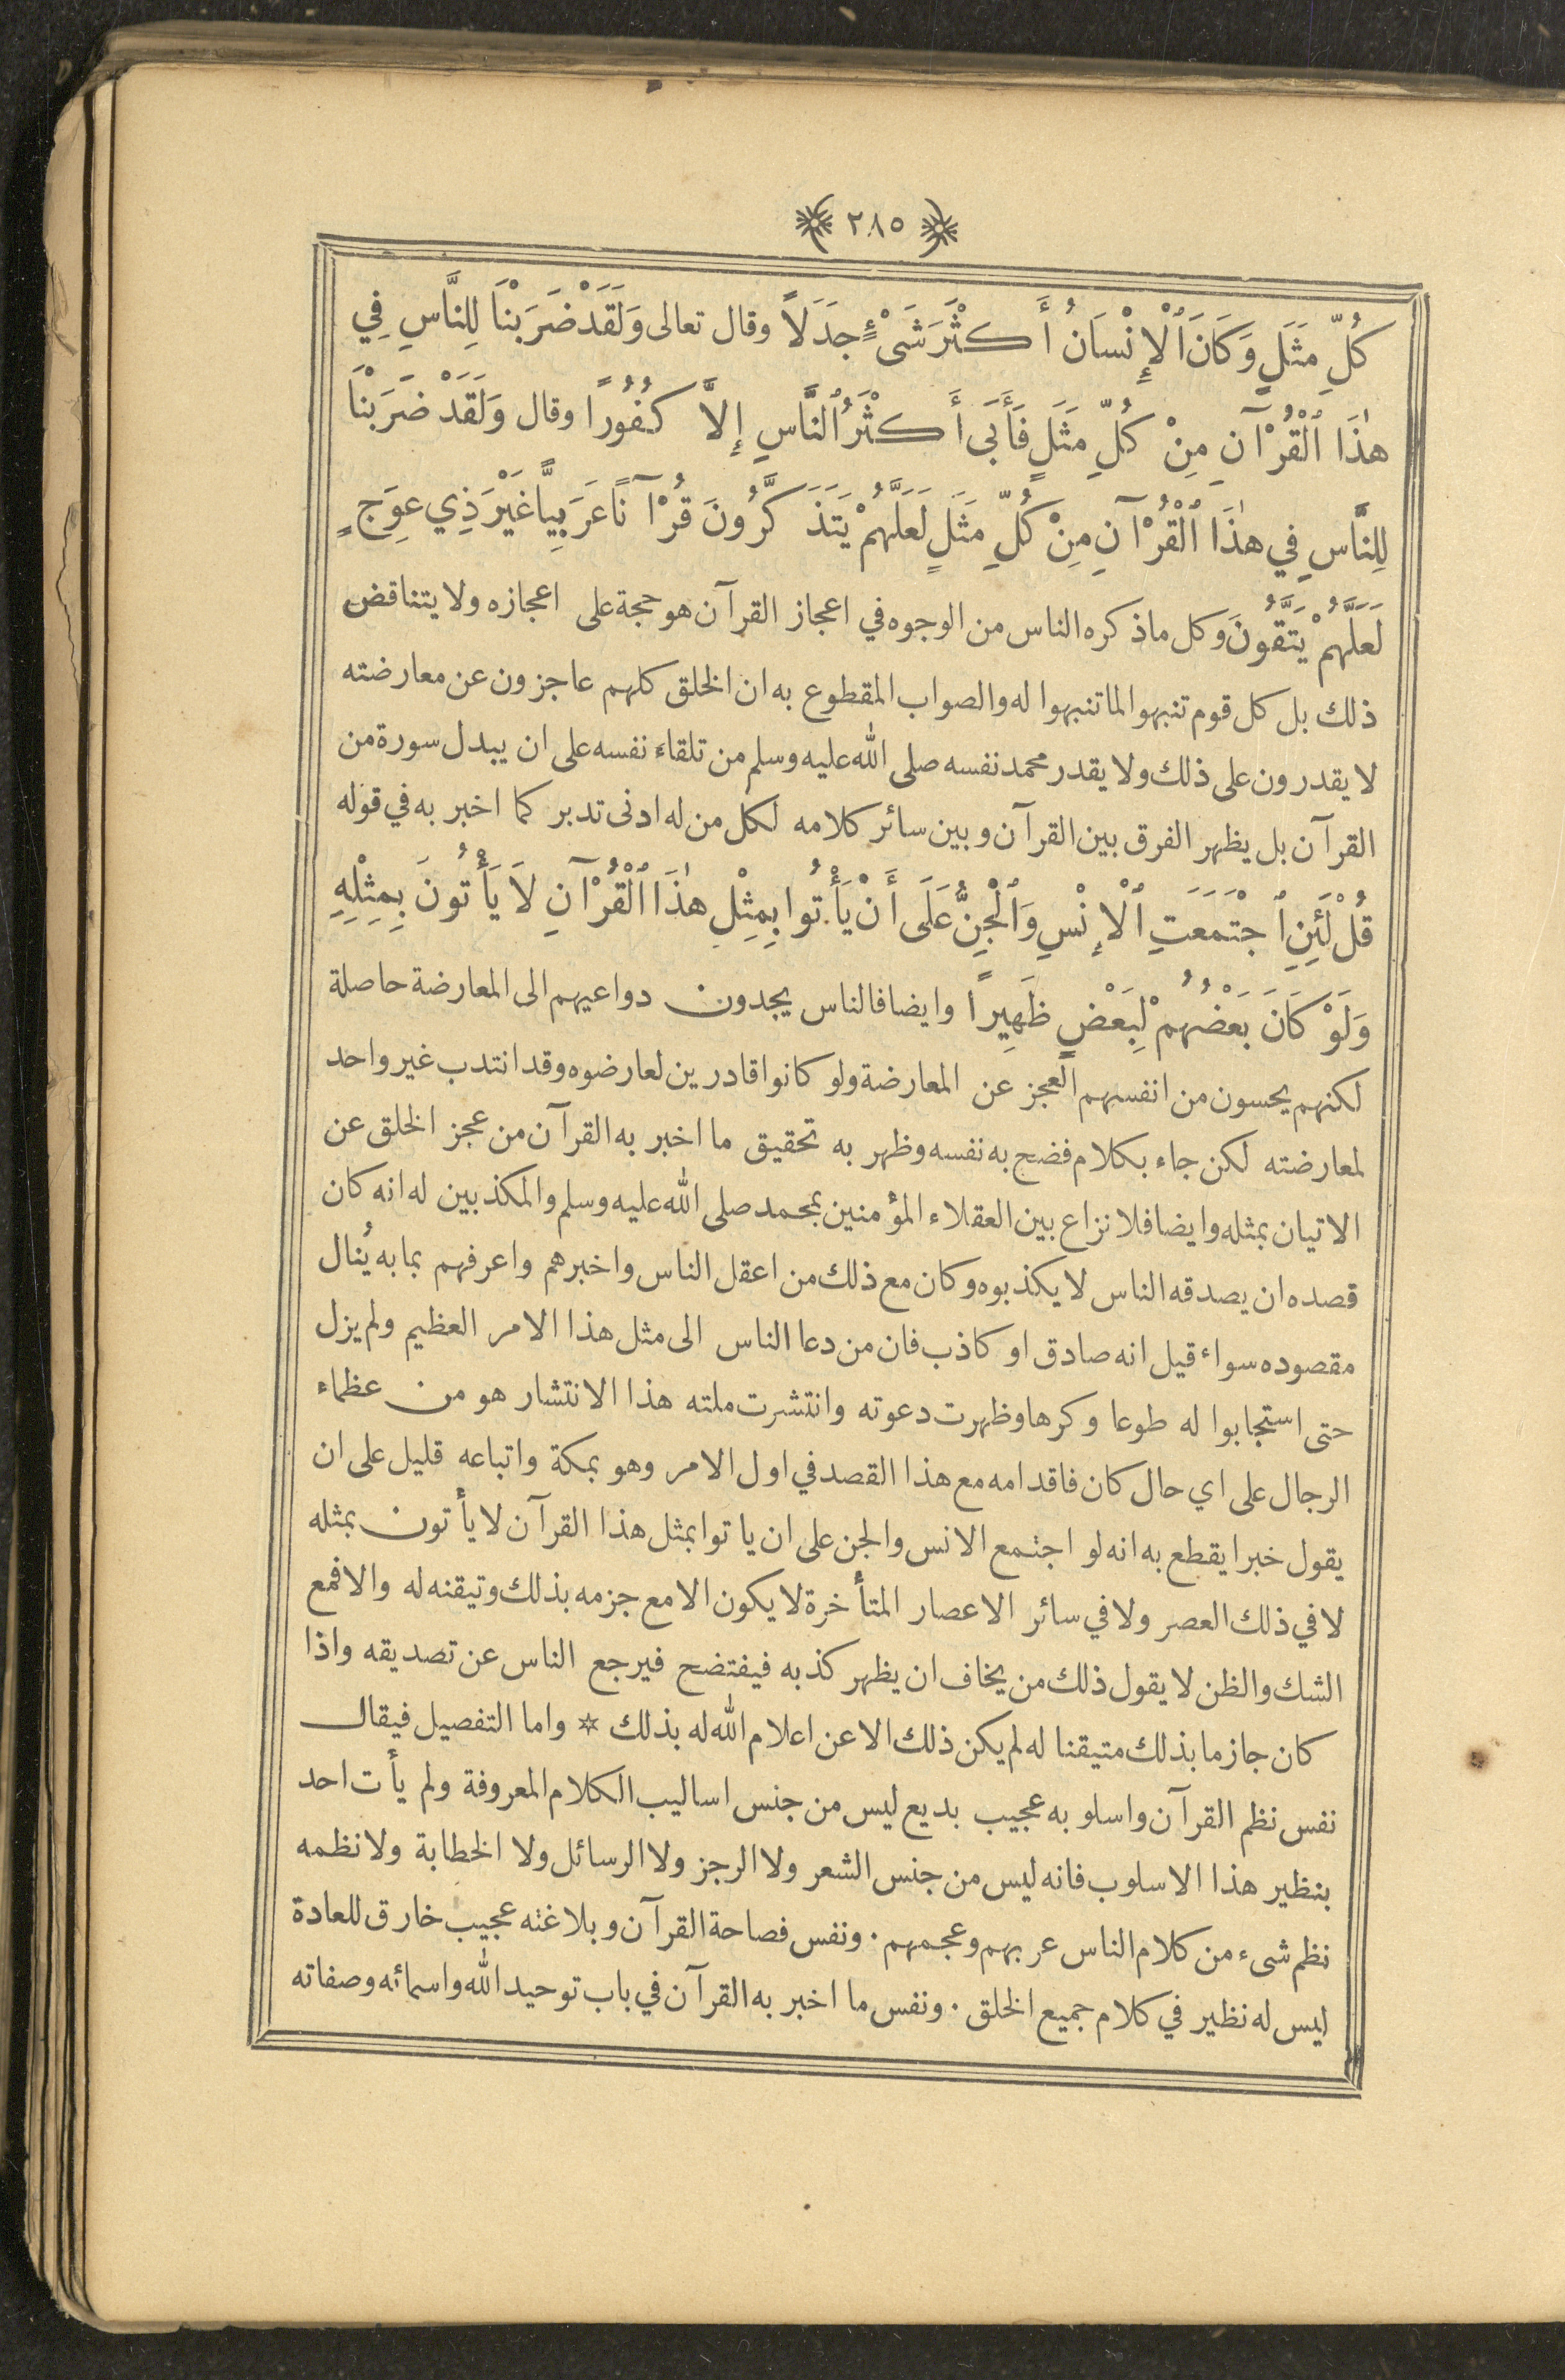 ٢٨٥
كُلِّ مَثَلٍ وَكَانَ ٱلْإِنْسَانُ أَكْثَرَ شَىْءٍ جَدَلاً وقال تعالى وَلَقَدْ ضَرَبْنَا لِلنَّاسِ فِي
هٰذَا ٱلْقُرْآنِ مِنْ كُلِّ مَثَلٍ فَأَبَى أَكْثَرُ ٱلنَّاسِ إِلاَّ كُفُورًا وقال وَلَقَدْ ضَرَبْنَا
لِلنَّاسِ فِي هٰذَا ٱلْقُرْآنِ مِنْ كُلِّ مَثَلٍ لَعَلَّهُمْ يَتَذَكَّرُونَ قُرْآنًا عَرَبِيًّا غَيْرَ ذِي عِوَجٍ
لَعَلَّهُمْ يَتَّقُونَ وكل ماذكره الناس من الوجوه في اعجاز القرآن هو حجة على اعجازه ولا يتناقض
ذلك بل كل قوم تنبهوا لما تنبهوا له والصواب المقطوع به ان الخلق كلهم عاجزون عن معارضته
لا يقدرون على ذلك ولا يقدر محمد نفسه صلى الله عليه وسلم من تلقاء نفسه على ان يبدل سورة من
القرآن بل يظهر الفرق بين القرآن وبين سائر كلامه لكل من له ادنى تدبر كما اخبر به في قوله
قُلْ لَئِنِ ٱجْتَمَعَتِ ٱلْإِنْسِ وَٱلْجِنُّ عَلَى أَنْ يَأْتُوا بِمِثْلِ هٰذَا ٱلْقُرْآنِ لاَ يَأْتُونَ بِمِثْلِهِ
وَلَوْ كَانَ بَعْضُهُمْ لِبَعْضٍ ظَهِيرًا وايضا فالناس يجدون دواعيهم الى المعارضة حاصلة
لكنهم يحسون من انفسهم العجز عن المعارضة ولو كانوا قادرين لعارضوه وقد انتدب غير واحد
لمعارضته لكن جاء بكلام فضح به نفسه وظهر به تحقيق ما اخبر به القرآن من عجز الخلق عن
الاتيان بمثله وايضا فلا نزاع بين العقلاء المؤمنين بمحمد صلى الله عليه وسلم والمكذبين له انه كان
قصده ان يصدقه الناس لا يكذبوه وكان مع ذلك من اعقل الناس واخبرهم واعرفهم بما به يُنال
مقصوده سواء قيل انه صادق او كاذب فان من دعا الناس الى مثل هذا الامر العظيم ولم يزل
حتى استجابوا له طوعا وكرها وظهرت دعوته وانتشرت ملته هذا الانتشار هو من عظماء
الرجال على اي حال كان فاقدامه مع هذا القصد في اول الامر وهو بمكة واتباعه قليل على ان
يقول خبرا يقطع به انه لو اجتمع الانس والجن على ان ياتوا بمثل هذا القرآن لا يأتون بمثله
لا في ذلك العصر ولا في سائر الاعصار المتأخرة لا يكون الا مع جزمه بذلك وتيقنه له والا فمع
الشك والظن لا يقول ذلك من يخاف ان يظهر كذبه فيفتضح فيرجع الناس عن تصديقه واذا
كان جازما بذلك متيقنا له لم يكن ذلك الا عن اعلام الله له بذلك ✡ واما التفصيل فيقال
نفس نظم القرآن واسلوبه عجيب بديع ليس من جنس اساليب الكلام المعروفة ولم يأت احد
بنظير هذا الاسلوب فانه ليس من جنس الشعر ولا الرجز ولا الرسائل ولا الخطابة ولا نظمه
نظم شىء من كلام الناس عربهم وعجمهم · ونفس فصاحة القرآن وبلاغته عجيب خارق للعادة
ليس له نظير في كلام جميع الخلق · ونفس ما اخبر به القرآن في باب توحيد الله واسمائه وصفاته